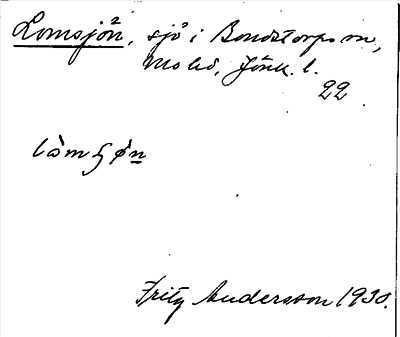 Lomsjön, sjö i Bondstorps sn,
Mo hd, Jönk. l.
22
Fritz Andersson 1930.